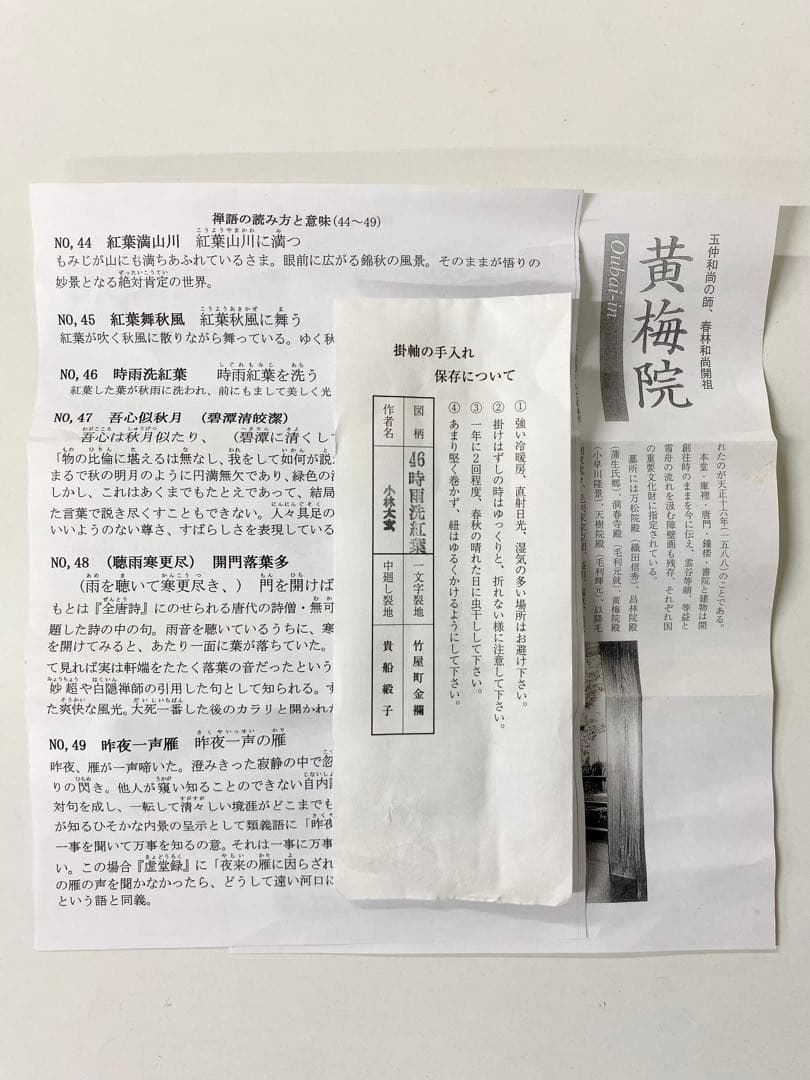 禅語の読み方と意味(44～49)
NO,44 紅葉満山川 紅葉山川に満つ
こうようやまかわ み
もみじが山にも満ちあふれているさま。眼前に広がる錦秋の風景。そのままが悟りの
妙景となる絶対肯定の世界。
ぜったいこうてい
NO,45 紅葉舞秋風 紅葉秋風に舞う
こうようあきかぜ ま
紅葉が吹く秋風に散りながら舞っている。ゆく秋
NO,46 時雨洗紅葉 時雨紅葉を洗う
しぐれもみじ あら
紅葉した葉が秋雨に洗われ、前にもまして美しく光
NO,47 吾心似秋月 (碧潭清皎潔)
吾心は秋月似たり、 (碧潭に清くして
わがこころ しゅうげつ に へきたん
「物の比倫に堪えるは無なし、我をして如何が説
もの ひりん た な われ いかん と
まるで秋の明月のように円満無欠であり、緑色の
しかし、これはあくまでもたとえであって、結局
た言葉で説き尽くすこともできない。人々具足の
にんにんぐそく
いいようのない尊さ、すばらしさを表現している
NO,48 (聴雨寒更尽) 開門落葉多
(雨を聴いて寒更尽き、) 門を開けば
あめ き かんこうつ もん ひら
もとは『全唐詩』にのせられる唐代の詩僧・無可
ぜんとうし むか
題した詩の中の句。雨音を聴いているうちに、寒
を開けてみると、あたり一面に葉が落ちていた。
て見れば実は軒端をたたく落葉の音だったという
妙超や白隠禅師の引用した句として知られる。す
みょうちょう はくいん
た爽快な風光。大死一番した後のカラリと開かれた
そうかい だいしいちばん
NO,49 昨夜一声雁 昨夜一声の雁
さくやいっせい かり
昨夜、雁が一声啼いた。澄みきった寂静の中で忽
りの閃き。他人が窺い知ることのできない自内
ひらめ うかが じないしょ
対句を成し、一転して清々しい境涯がどこまでも
すがすが
が知るひそかな内景の呈示として類義語に「昨夜
一事を聞いて万事を知るの意。それは一事に万事
い。この場合『虚堂録』に「夜来の雁に因らざれ
きょどうろく やらい かり よ
の雁の声を聞かなかったら、どうして遠い河口に
という語と同義。
掛軸の手入れ
保存について
① 強い冷暖房、直射日光、湿気の多い場所はお避け下さい。
② 掛けはずしの時はゆっくりと、折れない様に注意して下さい。
③ 一年に２回程度、春秋の晴れた日に虫干しして下さい。
④ あまり堅く巻かず、紐はゆるくかけるようにして下さい。
図柄 46時雨洗紅葉 一文字裂地 竹屋町金襴
作者名 小林太玄 中廻し裂地 貴船緞子
玉仲和尚の師、春林和尚開祖
黄梅院
Oubai-in
れたのが天正十六年(一五八八)のことである。
本堂・庫裡・唐門・鐘楼・書院と建物は開
創往時のままを今に伝え、雲谷等顔、等益と
雪舟の流れを汲む障壁画も残存、それぞれ国
の重要文化財に指定されている。
墓所には万松院殿(織田信秀)、昌林院殿
(蒲生氏郷)、洞春寺殿(毛利元就)、黄梅院殿
(小早川隆景)、天樹院殿(毛利輝元)、以降毛